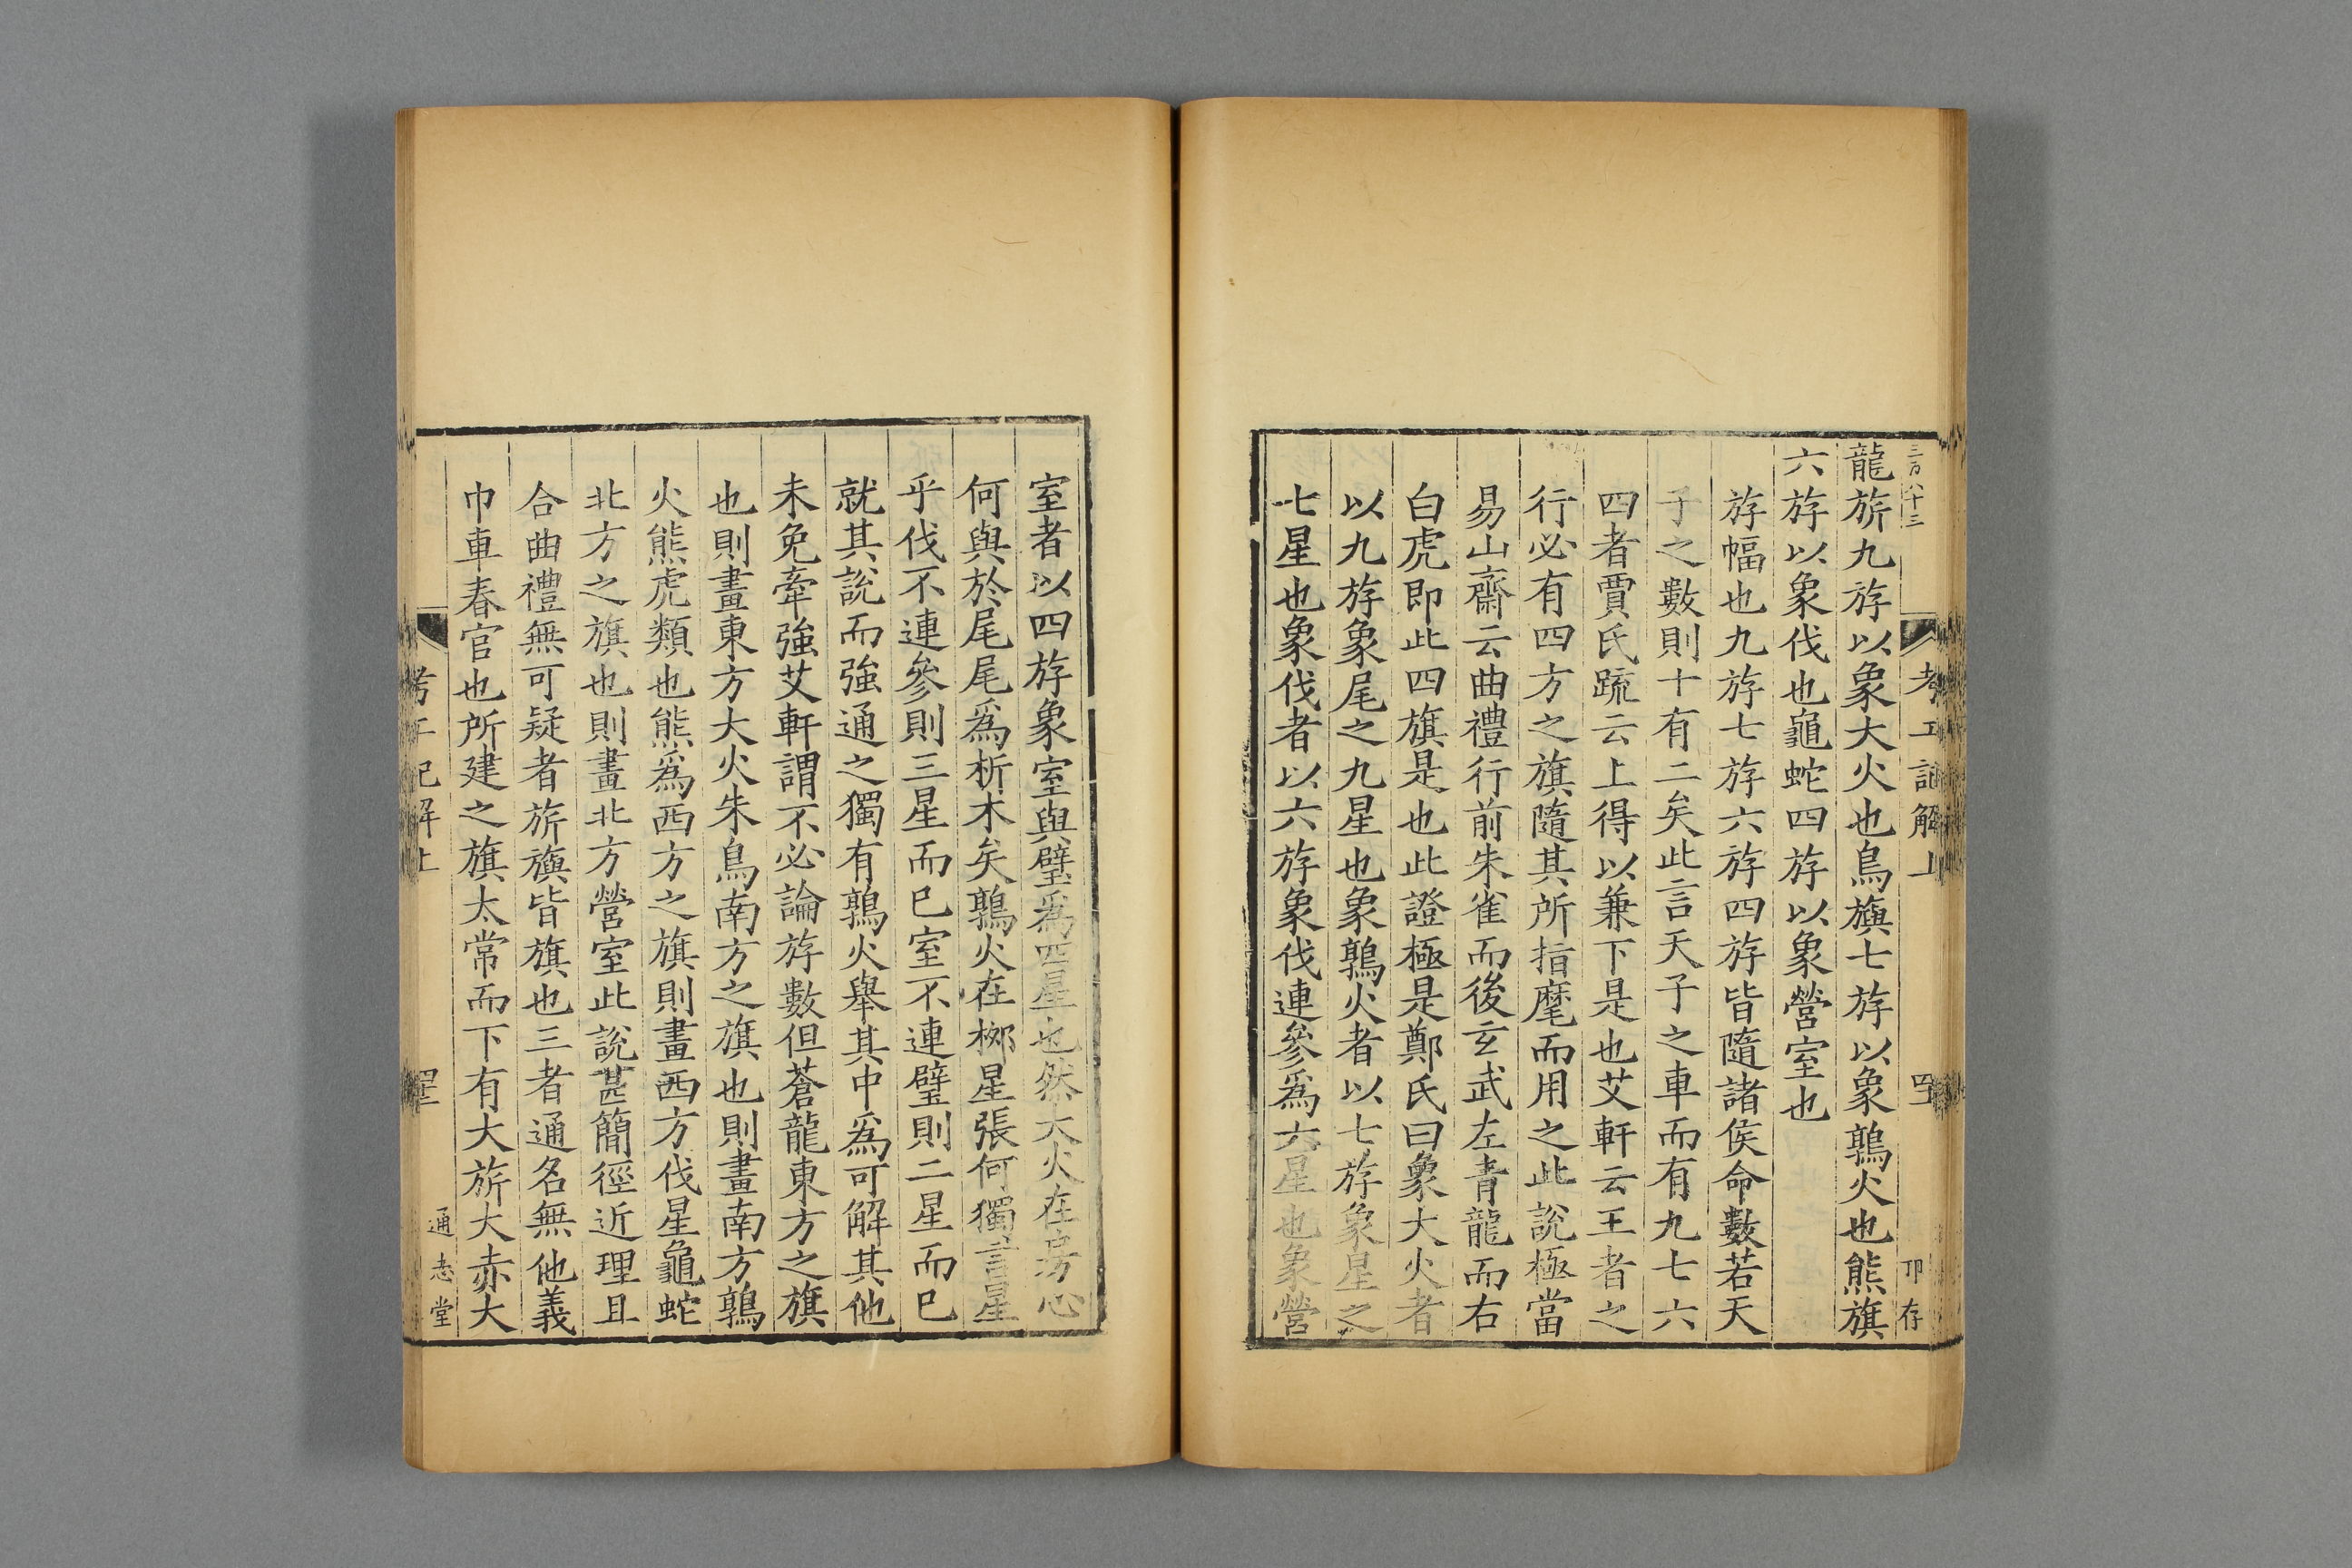 三百八十三
考工記解上
卭存
龍旂九斿以象大火也鳥旟七斿以象鶉火也熊旗
六斿以象伐也龜蛇四斿以象營室也
斿幅也九斿七斿六斿四斿皆隨諸侯命數若天
子之數則十有二矣此言天子之車而有九七六
四者賈氏疏云上得以兼下是也艾軒云王者之
行必有四方之旗隨其所指麾而用之此說極當
易山齋云曲禮行前朱雀而後玄武左青龍而右
白虎即此四旗是也此證極是鄭氏曰象大火者
以九斿象尾之九星也象鶉火者以七斿象星之
七星也象伐者以六斿象伐連參為六星也象營
室者以四斿象室與璧為四星也然大火在房心
何與於尾尾為析木矣鶉火在栁星張何獨言星
乎伐不連參則三星而已室不連璧則二星而已
就其說而強通之獨有鶉火舉其中為可解其他
未免牽強艾軒謂不必論斿數但蒼龍東方之旗
也則畫東方大火朱鳥南方之旗也則畫南方鶉
火熊虎類也熊為西方之旗則畫西方伐星龜蛇
北方之旗也則畫北方營室此說甚簡徑近理且
合曲禮無可疑者旂旟皆旗也三者通名無他義
巾車春官也所建之旗太常而下有大旂大赤大
考工記解上
通志堂